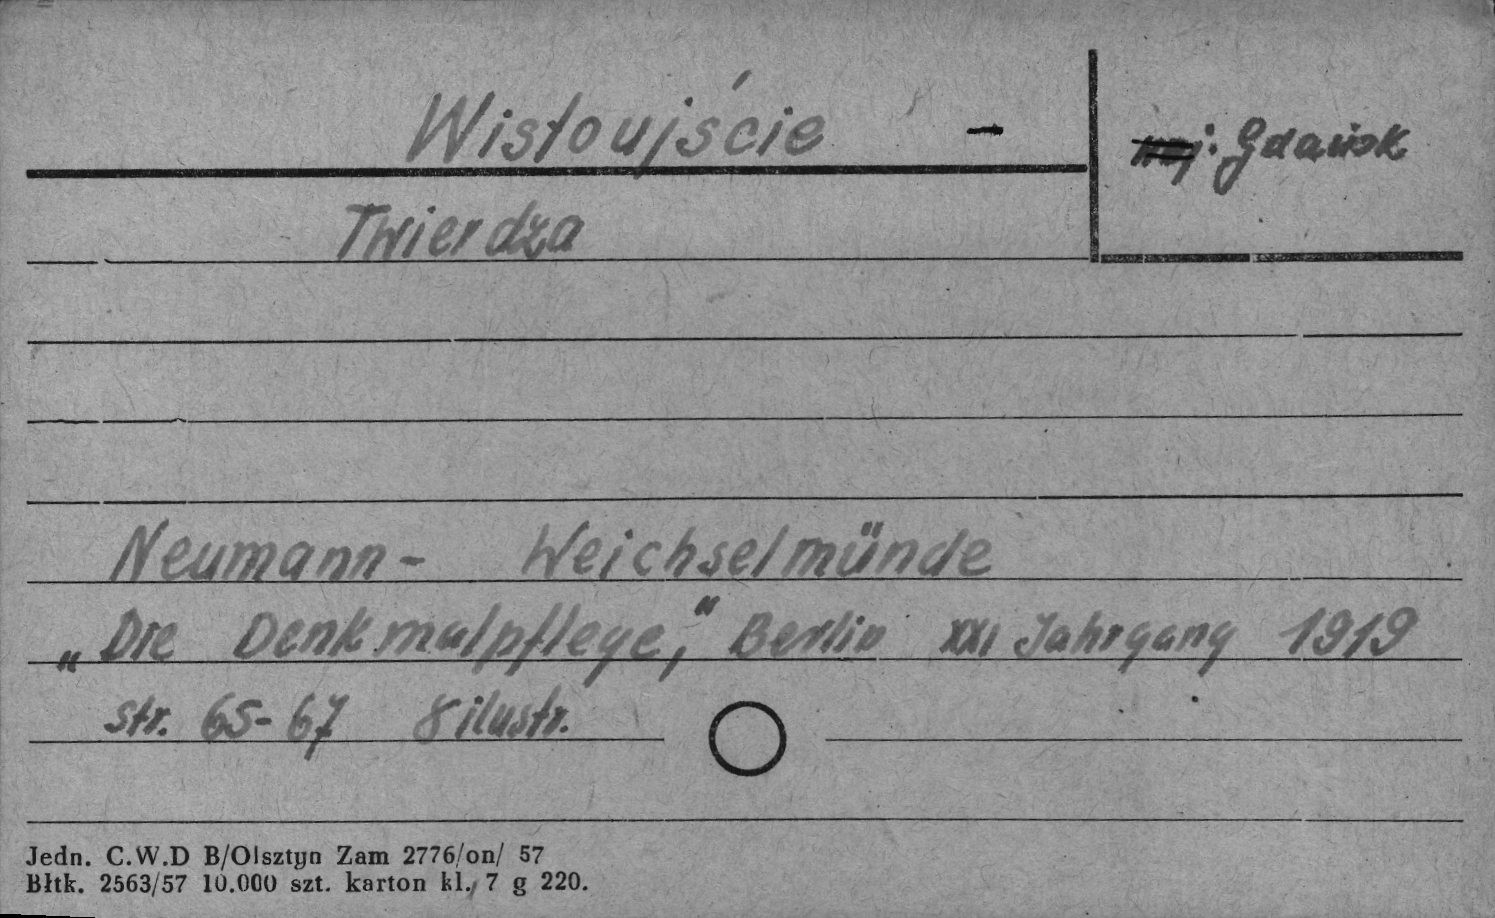 Wisłoujście -
woj. Gdańsk
Twierdza
Neumann - Weichselmünde
„Die Denkmalpflege," Berlin XXI Jahrgang 1919
str. 65-67 8 ilustr.
Jedn. C.W.D B/Olsztyn Zam 2776/on/ 57
Błtk. 2563/57 10.000 szt. karton kl. 7 g 220.